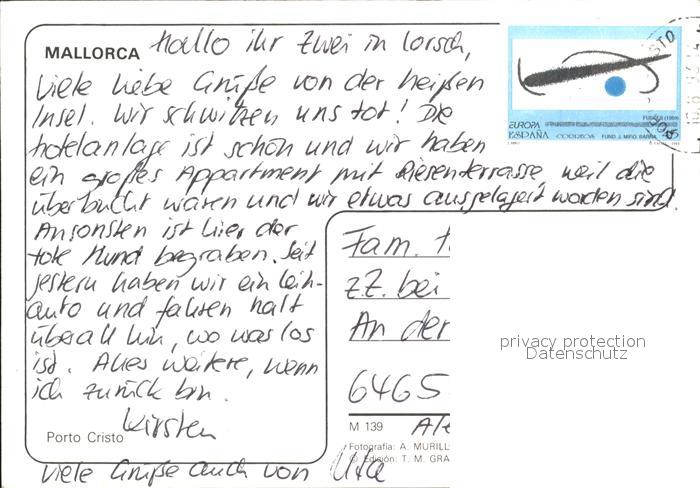 MALLORCA
Hallo ihr zwei in Lorsch,
viele liebe Grüße von der heißen
Insel. Wir schwitzen uns tot! Die
Hotelanlage ist schön und wir haben
ein großes Appartment mit Riesenterrasse, weil die
überbucht waren und wir etwas ausgelagert worden sind.
Ansonsten ist hier der
tote Hund begraben. Seit
gestern haben wir ein Leih-
auto und fahren halt
überall hin, wo was los
ist. Alles weitere, wenn
ich zurück bin.
Kirsten
Porto Cristo
Viele Grüße auch von Uta
EUROPA
ESPAÑA CORREOS FUND. J. MIRO. BARNA
Fam.
z.Z. bei
An der
6465
M 139
Fotografía: A. MURILL
© Edición: T. M. GRA
privacy protection
Datenschutz